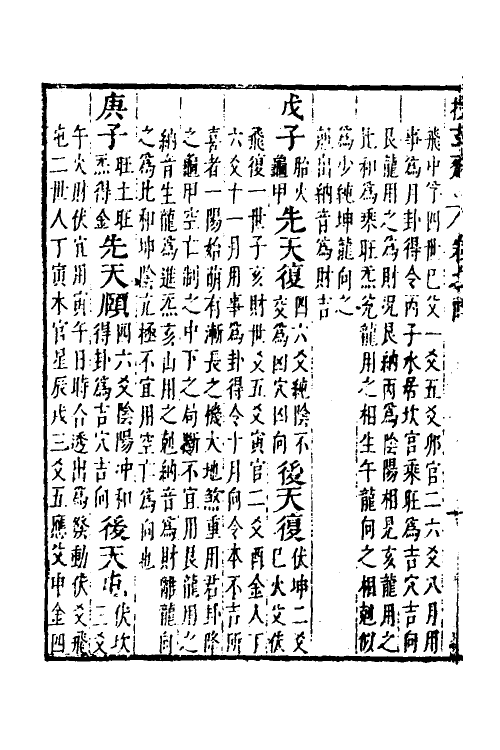 飛中孚四世巳父一爻五爻卯官二六爻八月用
事爲月卦得令丙子水居坎宮乘旺爲吉穴吉向
艮龍用之爲財況艮納丙爲陰陽相見亥龍用之
比和爲乘旺炁兌龍用之相生午龍向之相尅似
爲少純坤龍向之
尅出納音爲財吉
戊子 胎火龜甲 先天復 四六爻純陰不交爲凶穴凶向 後天復 伏坤二爻巳火父伏
飛復一世子亥財世爻五爻寅官二爻酉金人丁
六爻十一月用事爲卦得令十月向令本不吉所
喜者一陽始萌有漸長之機大地煞重用君卦降
之龜甲空亡制之中下之局斷不宜用艮龍用之
納音生龍爲進炁亥山用之尅納音爲財離龍向
之爲比和坤陰亢極不宜用空亡爲向也
庚子 旺土旺炁得金 先天頤 四六爻陰陽冲和得卦爲吉穴吉向 後天屯 伏坎三爻
午火財伏宜用寅午日時合透出爲發動伏爻飛
屯二世人丁寅木官星辰戌三爻五應父申金四